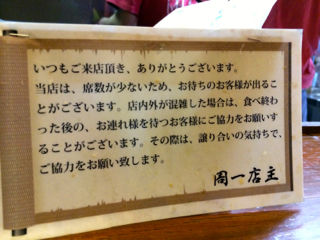 いつもご来店頂き、ありがとうございます。
当店は、席数が少ないため、お待ちのお客様が出るこ
とがございます。店内外が混雑した場合は、食べ終わ
った後の、お連れ様を待つお客様にご協力をお願いす
ることがございます。その際は、譲り合いの気持ちで、
ご協力をお願い致します。
周一店主